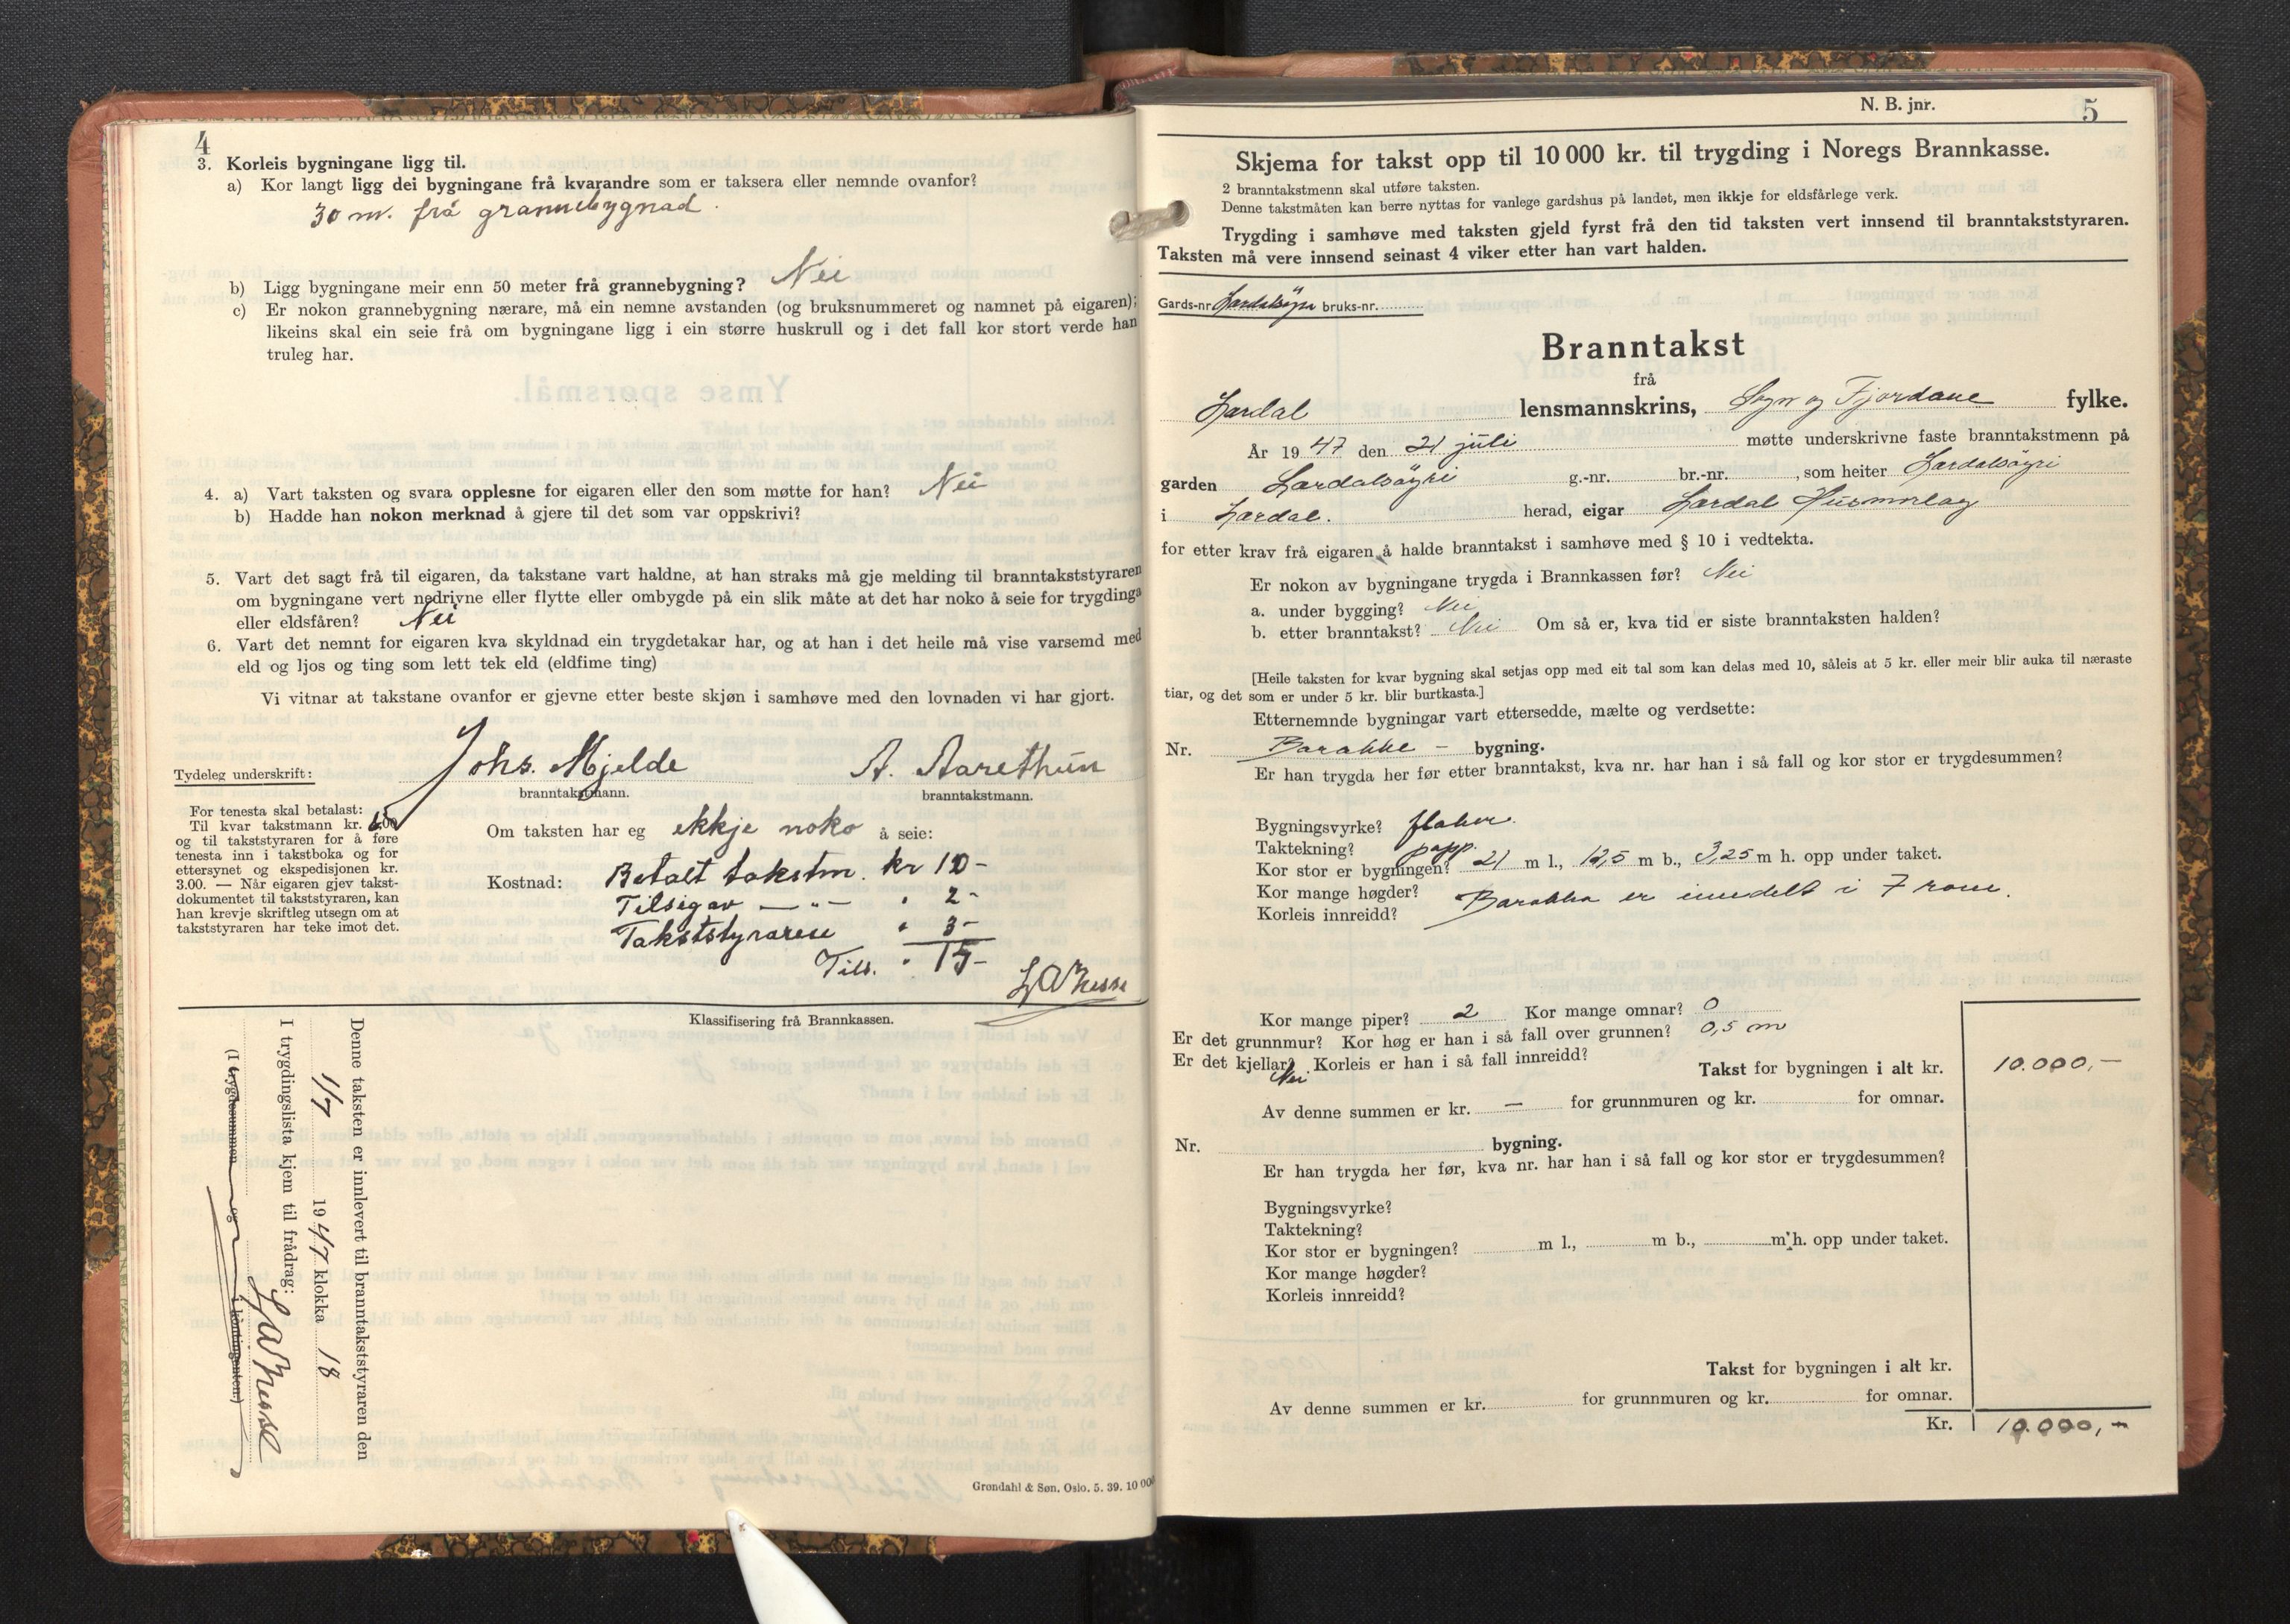 4
3. Korleis bygningane ligg til.
a) Kor langt ligg dei bygningane frå kvarandre som er taksera eller nemnde ovanfor?
30 m. frå grannebygnad.
b) Ligg bygningane meir enn 50 meter frå grannebygning? Nei
c) Er nokon grannebygning nærare, må ein nemne avstanden (og bruksnummeret og namnet på eigaren);
likeins skal ein seie frå om bygningane ligg i ein større huskrull og i det fall kor stort verde han
truleg har.
4. a) Vart taksten og svara opplesne for eigaren eller den som møtte for han? Nei
b) Hadde han nokon merknad å gjere til det som var oppskrivi?
5. Vart det sagt frå til eigaren, da takstane vart haldne, at han straks må gje melding til branntakststyraren
om bygningane vert nedrivne eller flytte eller ombygde på ein slik måte at det har noko å seie for trygdinga
eller eldsfåren? Nei
6. Vart det nemnt for eigaren kva skyldnad ein trygdetakar har, og at han i det heile må vise varsemd med
eld og ljos og ting som lett tek eld (eldfime ting)
Vi vitnar at takstane ovanfor er gjevne etter beste skjøn i samhøve med den lovnaden vi har gjort.
Tydeleg underskrift: Johs. Mjelde A. Aarethun
branntakstmann. branntakstmann.
For tenesta skal betalast:
Til kvar takstmann kr. 6.00
og til takststyraren for å føre
tenesta inn i takstboka og for
ettersynet og ekspedisjonen kr.
3.00. — Når eigaren gjev takst-
dokumentet til takststyraren, kan
han krevje skriftleg utsegn om at
takststyraren har teke imot det.
Om taksten har eg ekkje noko å seie:
Kostnad: Betalt takstm. kr 10-
Tilsigav — " — " 2-
Takststyraren " 3-
Tils. " 15-
Klassifisering frå Brannkassen.
Denne taksten er innlevert til branntakststyraren den
1/7 1947 klokka 18
I trygdingslista kjem til frådrag:
(I trygdesummen og i kontingenten.)
Grøndahl & Søn, Oslo. 5. 39. 10 000
N. B. jnr. 5
Skjema for takst opp til 10 000 kr. til trygding i Noregs Brannkasse.
2 branntakstmenn skal utføre taksten.
Denne takstmåten kan berre nyttas for vanlege gardshus på landet, men ikkje for eldsfårlege verk.
Trygding i samhøve med taksten gjeld fyrst frå den tid taksten vert innsend til branntakststyraren.
Taksten må vere innsend seinast 4 viker etter han vart halden.
Gards-nr. Lærdalsøyri bruks-nr.
Branntakst
frå
Lærdal lensmannskrins, Sogn og Fjordane fylke.
År 1947 den 21 juli møtte underskrivne faste branntakstmenn på
garden Lærdalsøyri g.-nr. br.-nr. , som heiter Lærdalsøyri
i Lærdal. herad, eigar Lærdal Husmorlag
for etter krav frå eigaren å halde branntakst i samhøve med § 10 i vedtekta.
Er nokon av bygningane trygda i Brannkassen før? Nei
a. under bygging? Nei
b. etter branntakst? Nei Om så er, kva tid er siste branntaksten halden?
[Heile taksten for kvar bygning skal setjas opp med eit tal som kan delas med 10, såleis at 5 kr. eller meir blir auka til næraste
tiar, og det som er under 5 kr. blir burtkasta.]
Etternemnde bygningar vart ettersedde, mælte og verdsette:
Nr. Barakke - bygning.
Er han trygda her før etter branntakst, kva nr. har han i så fall og kor stor er trygdesummen?
Bygningsvyrke? flaker.
Taktekning? papp.
Kor stor er bygningen? 21 m l., 12,5 m b., 3,25 m h. opp under taket.
Kor mange høgder?
Korleis innreidd? Barakka er inndelt i 7 rom.
Kor mange piper? 2 Kor mange omnar? 0
Er det grunnmur? Kor høg er han i så fall over grunnen? 0,5 m
Er det kjellar? Korleis er han i så fall innreidd?
Nei
Takst for bygningen i alt kr. 10.000,—
Av denne summen er kr. — for grunnmuren og kr. for omnar.
Nr. bygning.
Er han trygda her før, kva nr. har han i så fall og kor stor er trygdesummen?
Bygningsvyrke?
Taktekning?
Kor stor er bygningen? m l., m b., m h. opp under taket.
Kor mange høgder?
Korleis innreidd?
Takst for bygningen i alt kr.
Av denne summen er kr. for grunnmuren og kr. for omnar.
Kr. 10.000,—